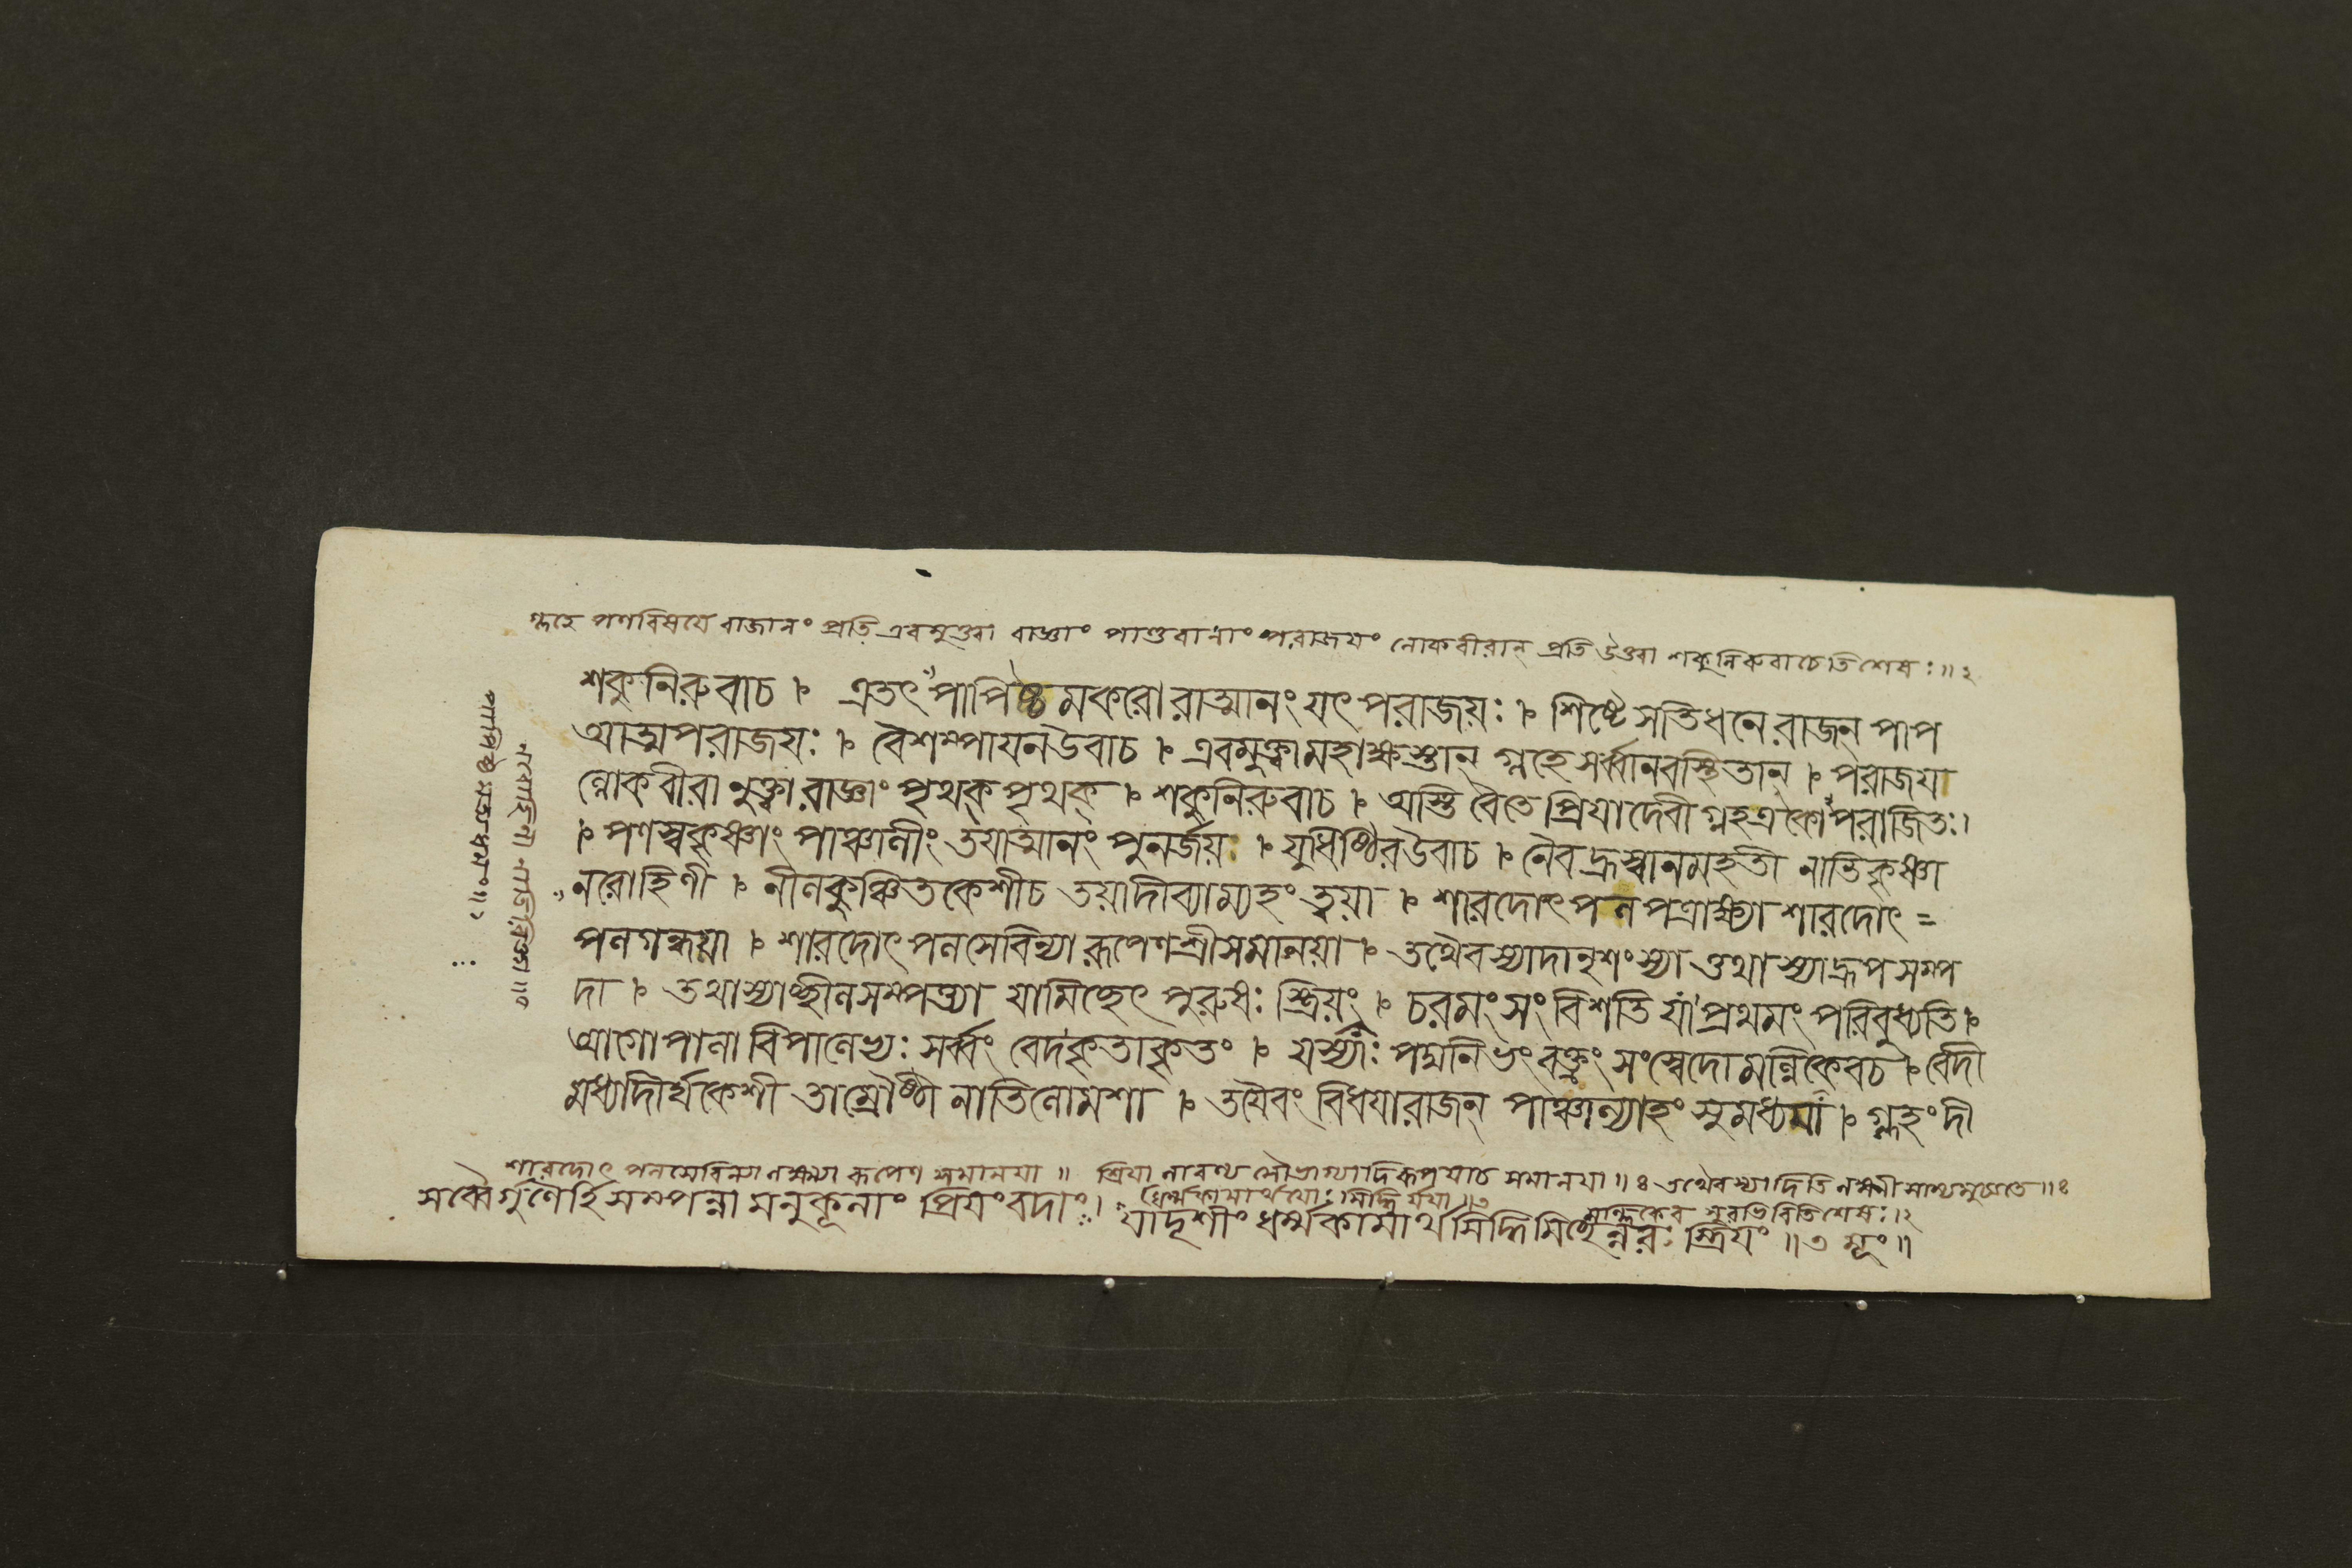 গ্লহে পণবিষয়ে রাজানং প্রতি এবমুক্ত্বা রাজ্ঞাং পাণ্ডবানাং পরাজয়ং লোকবীরান্ প্রতি উক্ত্বা শকুনিরুবাচেতিশেষঃ॥২
শকুনিরুবাচ । এতৎ পাপিষ্ঠমকরো রাত্মানং যৎ পরাজয়ঃ । শিষ্টে সতিধনে রাজন্ পাপ
আত্মপরাজয়ঃ । বৈশম্পায়নউবাচ । এবমুক্ত্বামহাক্ষস্তান্ গ্লহেসর্ব্বানবস্থিতান্ । পরাজয়া
ল্লোকবীরানুক্ত্বা রাজ্ঞাং পৃথক্ পৃথক্ । শকুনিরুবাচ । অস্তি বৈতে প্রিয়াদেবী গ্লহএকো পরাজিতঃ।
। পণস্বকৃষ্ণাং পাঞ্চালীং তয়াত্মানং পুনর্জয় । যুধিষ্ঠিরউবাচ । নৈবহ্রস্বানমহতী নাতিকৃষ্ণা
নরোহিণী । নীলকুঞ্চিতকেশীচ তয়াদীব্যাম্যহং ত্বয়া । শারদোৎপলপত্রাক্ষ্যা শারদোৎ=
পলগন্ধয়া । শারদোৎপলসেবিন্যা রূপেণশ্রীসমানয়া । তথৈবস্যাদানৃশংস্যা ত্তথাস্যাদ্রূপসম্প
দা । তথাস্যাচ্ছীলসম্পত্ত্যা যামিচ্ছেৎ পুরুষঃ স্ত্রিয়ং । চরমংসংবিশতি যা প্রথমং পরিবুধ্যতি।
আগোপালা বিপালেভ্যঃ সর্ব্বং বেদকৃতাকৃতং । যস্যাঃ পদ্মনিভং বক্ত্রং সংস্বেদোমল্লিকেবচ । বেদী
মধ্যাদীর্ঘকেশী তাম্রৌষ্ঠী নাতিলোমশা । তয়ৈবং বিধয়ারাজন্ পাঞ্চাল্যাহং সুমধ্যমা । গ্লহংদী
শারদোৎপলসেবিন্যা লক্ষ্ম্যা রূপেণ সমানয়া ॥ শ্রিয়া লাবণ্য সৌভাগ্যাদিরূপয়াচ সমানয়া॥ঃ তথৈবস্যাদিতি লক্ষ্মীসাম্যমুচ্যতে॥ঃ
ধর্ম্মকামার্থয়োঃ সিদ্ধির্যয়া॥৩ মল্লিকেব সুরভিরিতিশেষঃ।২
সর্ব্বৈর্গুণৈর্হি সম্পন্না মনুকূলাং প্রিয়ংবদাং। যাদৃশীং ধর্ম্মকামার্থ সিদ্ধিমিচ্ছেন্নরঃ স্ত্রিয়ং ॥৩ মূং॥
পাপিষ্ঠং মত্যধমং॥১